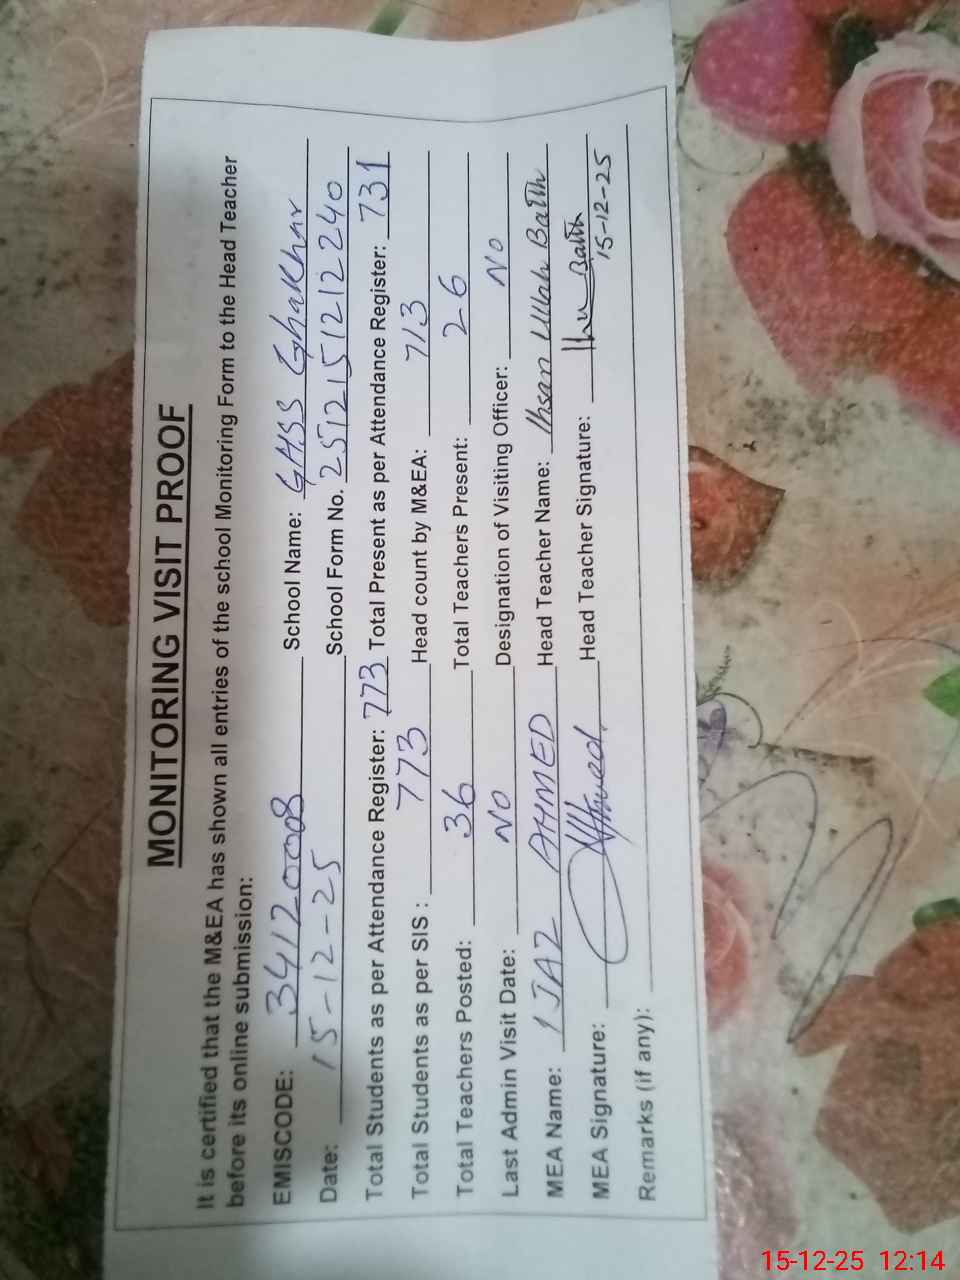 MONITORING VISIT PROOF
It is certified that the M&EA has shown all entries of the school Monitoring Form to the Head Teacher
before its online submission:
EMISCODE: 34120008 School Name: GHSS Ghakhar
Date: 15-12-25 School Form No. 2512151212240
Total Students as per Attendance Register: 773 Total Present as per Attendance Register: 731
Total Students as per SIS : 773 Head count by M&EA: 713
Total Teachers Posted: 36 Total Teachers Present: 26
Last Admin Visit Date: NO Designation of Visiting Officer: NO
MEA Name: IJAZ AHMED Head Teacher Name: Ihsan Ullah Batth
MEA Signature: Ahmed Head Teacher Signature: Batth
15-12-25
Remarks (if any):
15-12-25 12:14